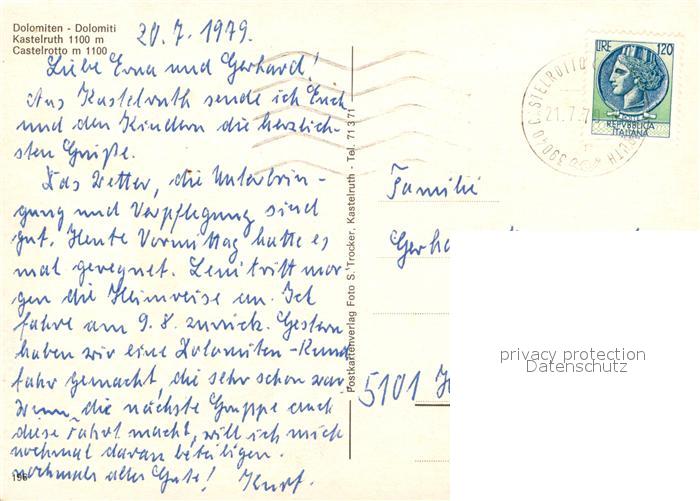 Dolomiten - Dolomiti
Kastelruth 1100 m
Castelrotto m 1100
20.7.1979.
Liebe Erna und Gerhard!
Aus Kastelruth sende ich Euch
und den Kindern die herzlich-
sten Grüße.
Das Wetter, die Unterbrin-
gung und Verpflegung sind
gut. Heute Vormittag hatte es
mal geregnet. tritt mor-
gen die Heimreise an. Ich
fahre am 9.8. zurück. Gestern
haben wir eine Dolomiten-Rund
fahr gemacht, die sehr schön war.
Wenn die nächste Gruppe auch
diese Fahrt macht, will ich mich
nochmal daran beteiligen.
nochmals alles Gute! Kurt.
196
Postkartenverlag Foto S. Trocker, Kastelruth - Tel. 71371
LIRE 120
REPVBBLICA
ITALIANA
CASTELROTTO
21.7.7
39040
Familie
Gerha
5101
privacy protection
Datenschutz